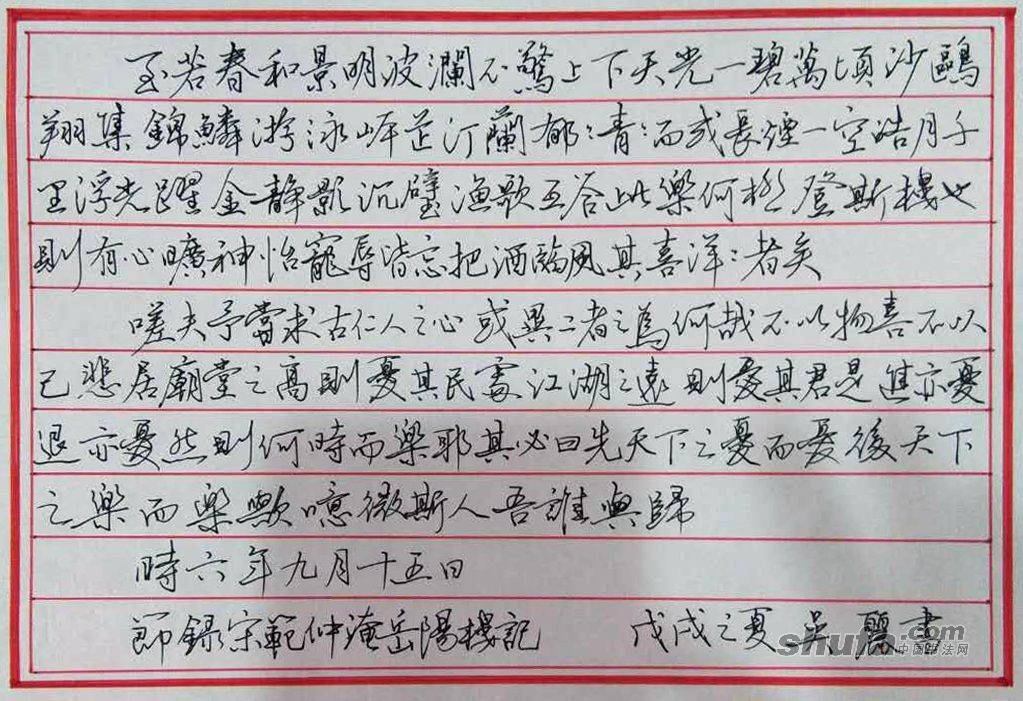 至若春和景明波瀾不驚上下天光一碧萬頃沙鷗
翔集錦鱗游泳岸芷汀蘭郁〻青〻而或長煙一空皓月千
里浮光躍金静影沉璧漁歌互答此樂何極登斯樓也
則有心曠神怡寵辱皆忘把酒臨風其喜洋〻者矣
嗟夫予嘗求古仁人之心或異二者之為何哉不以物喜不以
己悲居廟堂之高則憂其民處江湖之遠則憂其君是進亦憂
退亦憂然則何時而樂耶其必曰先天下之憂而憂後天下
之樂而樂歟噫微斯人吾誰與歸
時六年九月十五日
節錄宋範仲淹岳陽樓記 戊戌之夏吳麗書
shufa.com
中国书法网